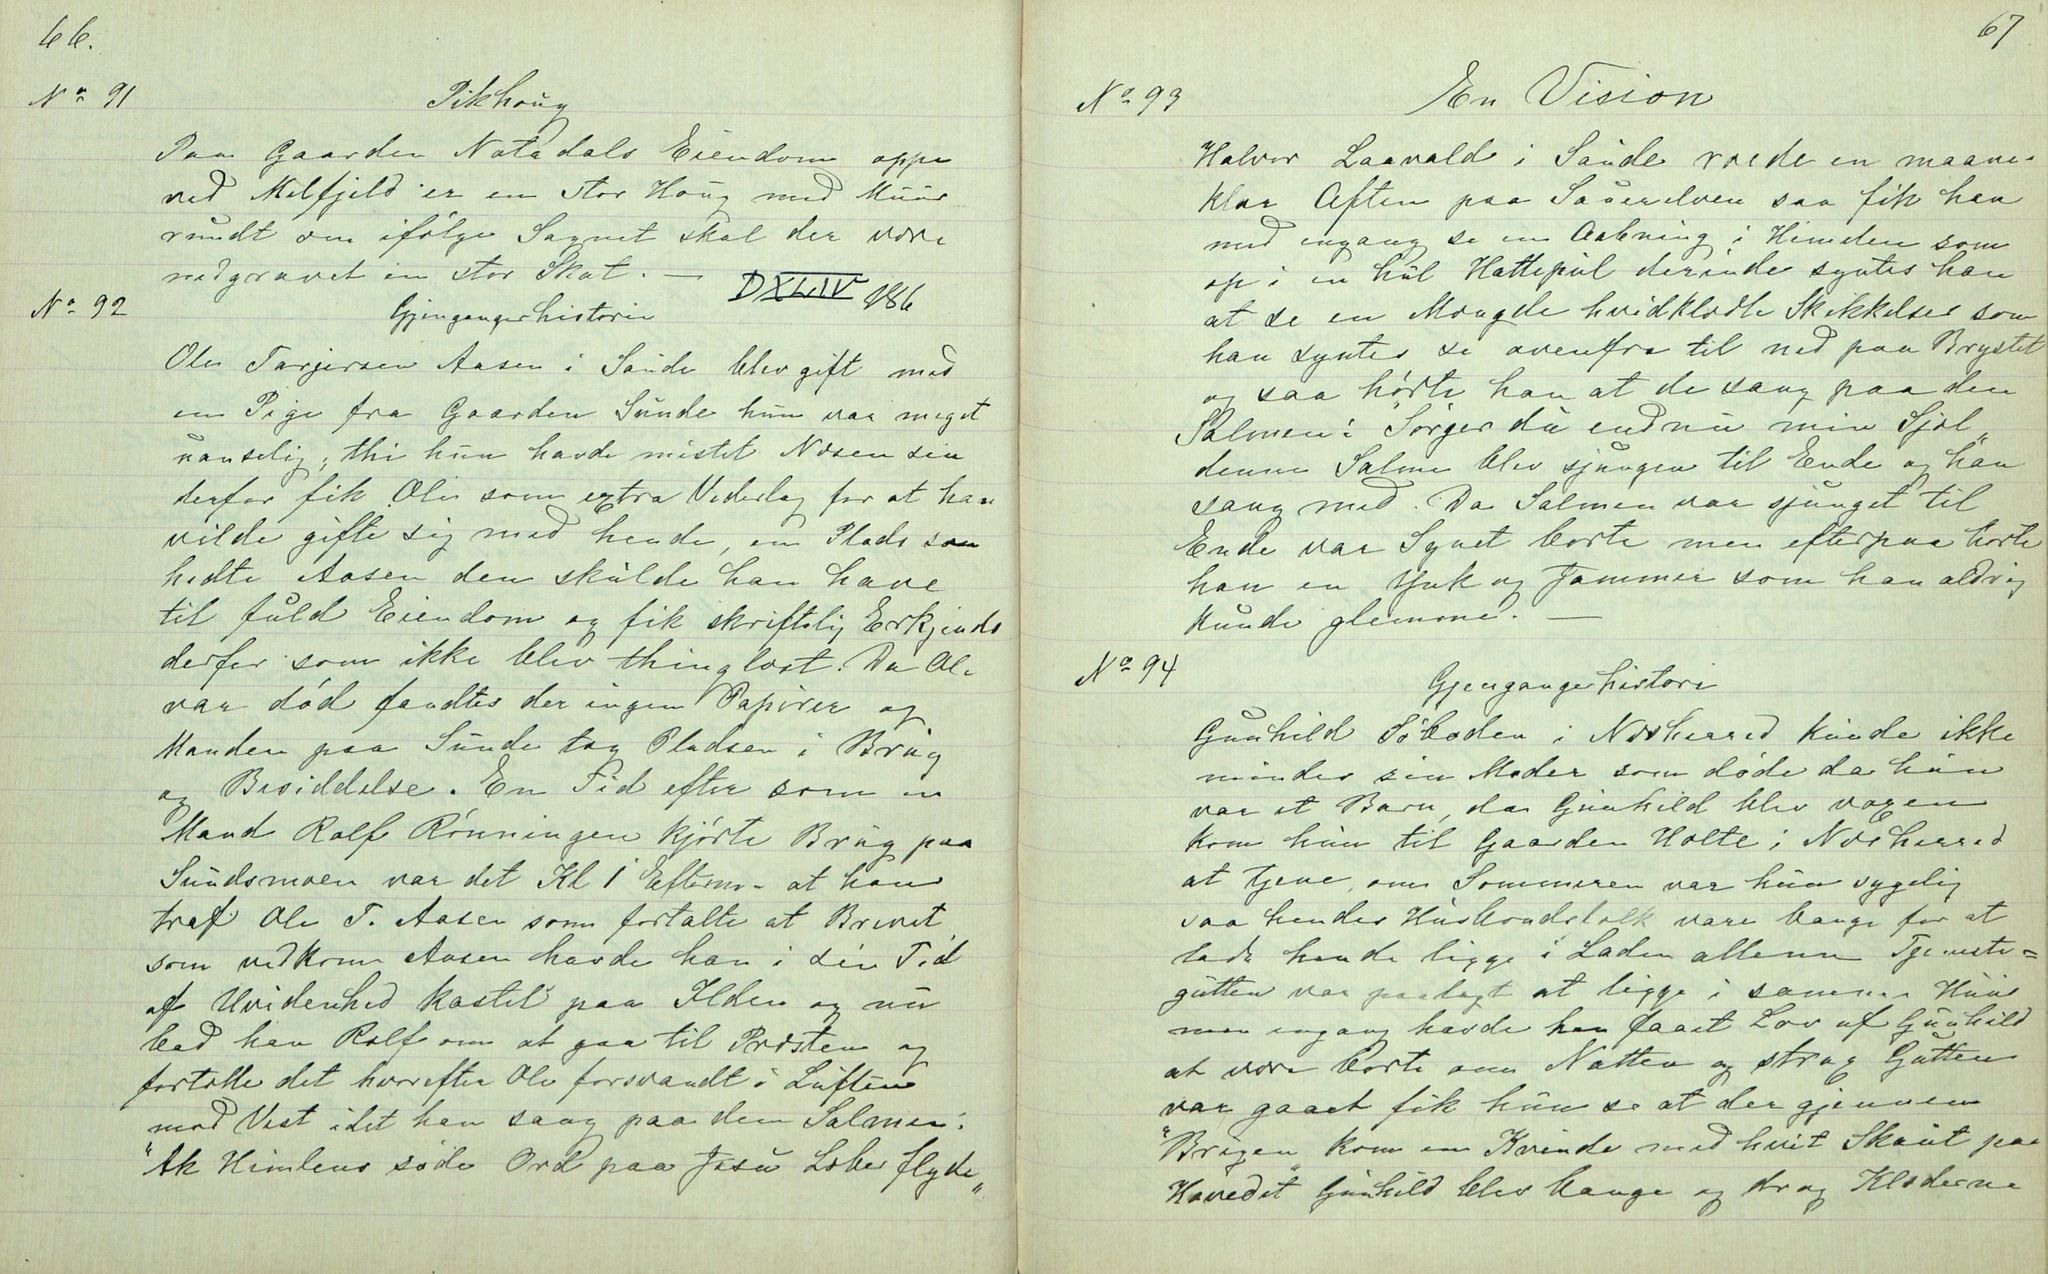 66.
No 91
Pikhoug
Paa Gaarden Natadals Eiendom oppe
ved Melfjeld er en stor Houg med Muur
rundt om ifølge Sagnet skal der være
nedgravet en stor Skat. —
DXLIV 186
No 92
Gjengangerhistorie
Ole Tarjersen Aasen i Saude blev gift med
en Pige fra Gaarden Sunde hun var meget
vanselig, thi hun havde mistet Næsen sin
derfor fik Ole som extra Vederlag for at han
vilde gifte sig med hende, en Plads som
hedte Aasen den skulde han have
til fuld Eiendom og fik skriftelig Erkjends
derfor som ikke blev thinglæst. Da Ole
var død fandtes der ingen Papirer og
Manden paa Sunde tog Pladsen i Brug
og Besiddelse. En Tid efter som en
Mand Rolf Rønningen kjørte Brug paa
Sundsmoen var det Kl 1 Efterm. at han
traf Ole T. Aasen som fortalte at Brevet
som vedkom Aasen havde han i sin Tid
af Uvidenhed kastet paa Ilden og nu
bad han Rolf om at gaa til Præsten og
fortælle det hvorefter Ole forsvandt i Luften
mod Vest idet han sang paa den Salmen:
"Ak Himlens søde Ord paa Jesu Læber flyde„
67
No 93
En Vision
Halvor Laavald i Saude roede en maane-
klar Aften paa Sauerelven saa fik han
med engang se en Aabning i Himlen som
op i en hul Hattepul derinde syntes han
at se en Mængde hvidklædte Skikkelser som
han syntes se ovenfra til ned paa Brystet
og saa hørte han at de sang paa den
Salmen: "Sørger du endnu min Sjæl„
denne Salme blev sjungen til Ende og han
sang med. Da Salmen var sjunget til
Ende var Synet borte men efterpaa hørte
han en Ynk og Jammer som han aldrig
kunde glemme. —
No 94
Gjengangerhistorie
Gunhild Søboden i Nesherred kunde ikke
mindes sin Moder som døde da hun
var et Barn, da Gunhild blev voxen
kom hun til Gaarden Holte i Nesherred
at tjene, om Sommeren var hun sygelig
saa hendes Husbondsfolk vare bange for at
lade hende ligge i Laden allene Tjeneste=
gutten var paalagt at ligge i samme Huus
men engang havde han faaet Lov af Gunhild
at være borte om Natten og strax Gutten
var gaaet fik hun se at der gjennem
"Brigen„ kom en Kvinde med hvit Skaut paa
Hovedet Gunhild blev bange og drog Klæderne